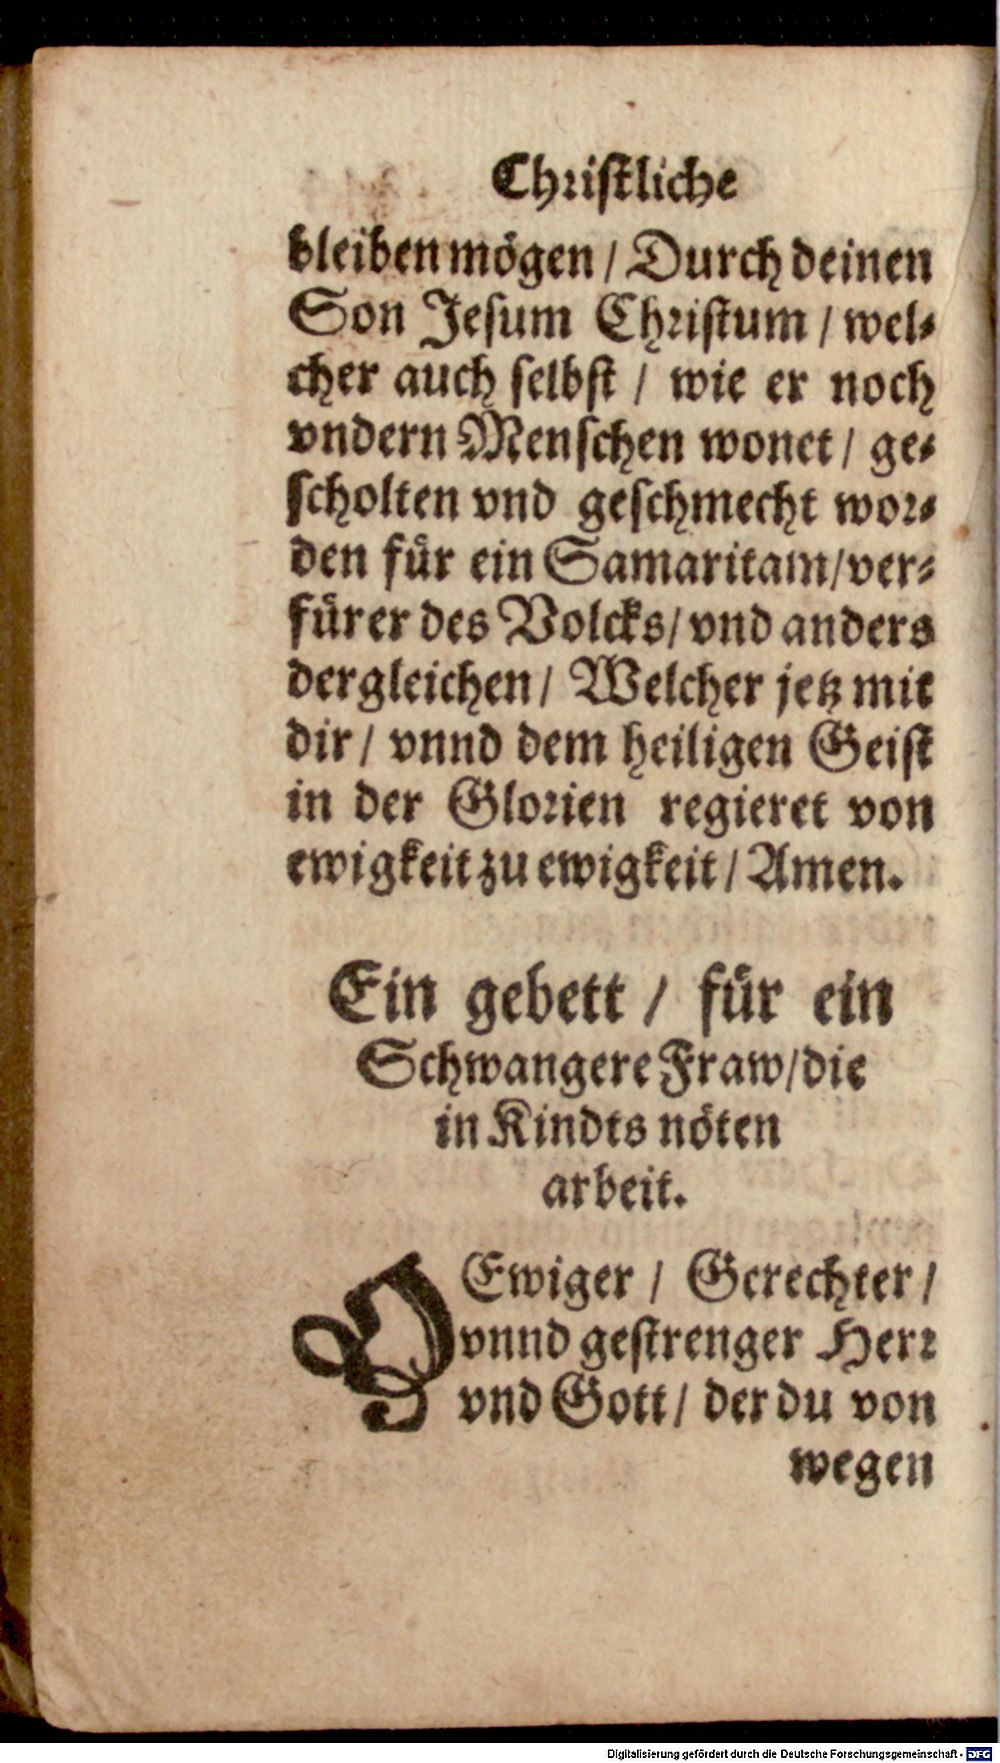 Christliche
bleiben mögen / Durch deinen
Son Jesum Christum / wel⸗
cher auch selbst / wie er noch
vndern Menschen wonet / ge⸗
scholten vnd geschmecht wor⸗
den für ein Samaritam / ver⸗
fürer des Volcks / vnd anders
dergleichen / Welcher jetz mit
dir / vnnd dem heiligen Geist
in der Glorien regieret von
ewigkeit zu ewigkeit / Amen.
Ein gebett / für ein
Schwangere Fraw / die
in Kindts nöten
arbeit.
O Ewiger / Gerechter /
vnnd gestrenger Herr
vnd Gott / der du von
wegen
Digitalisierung gefördert durch die Deutsche Forschungsgemeinschaft - DFG